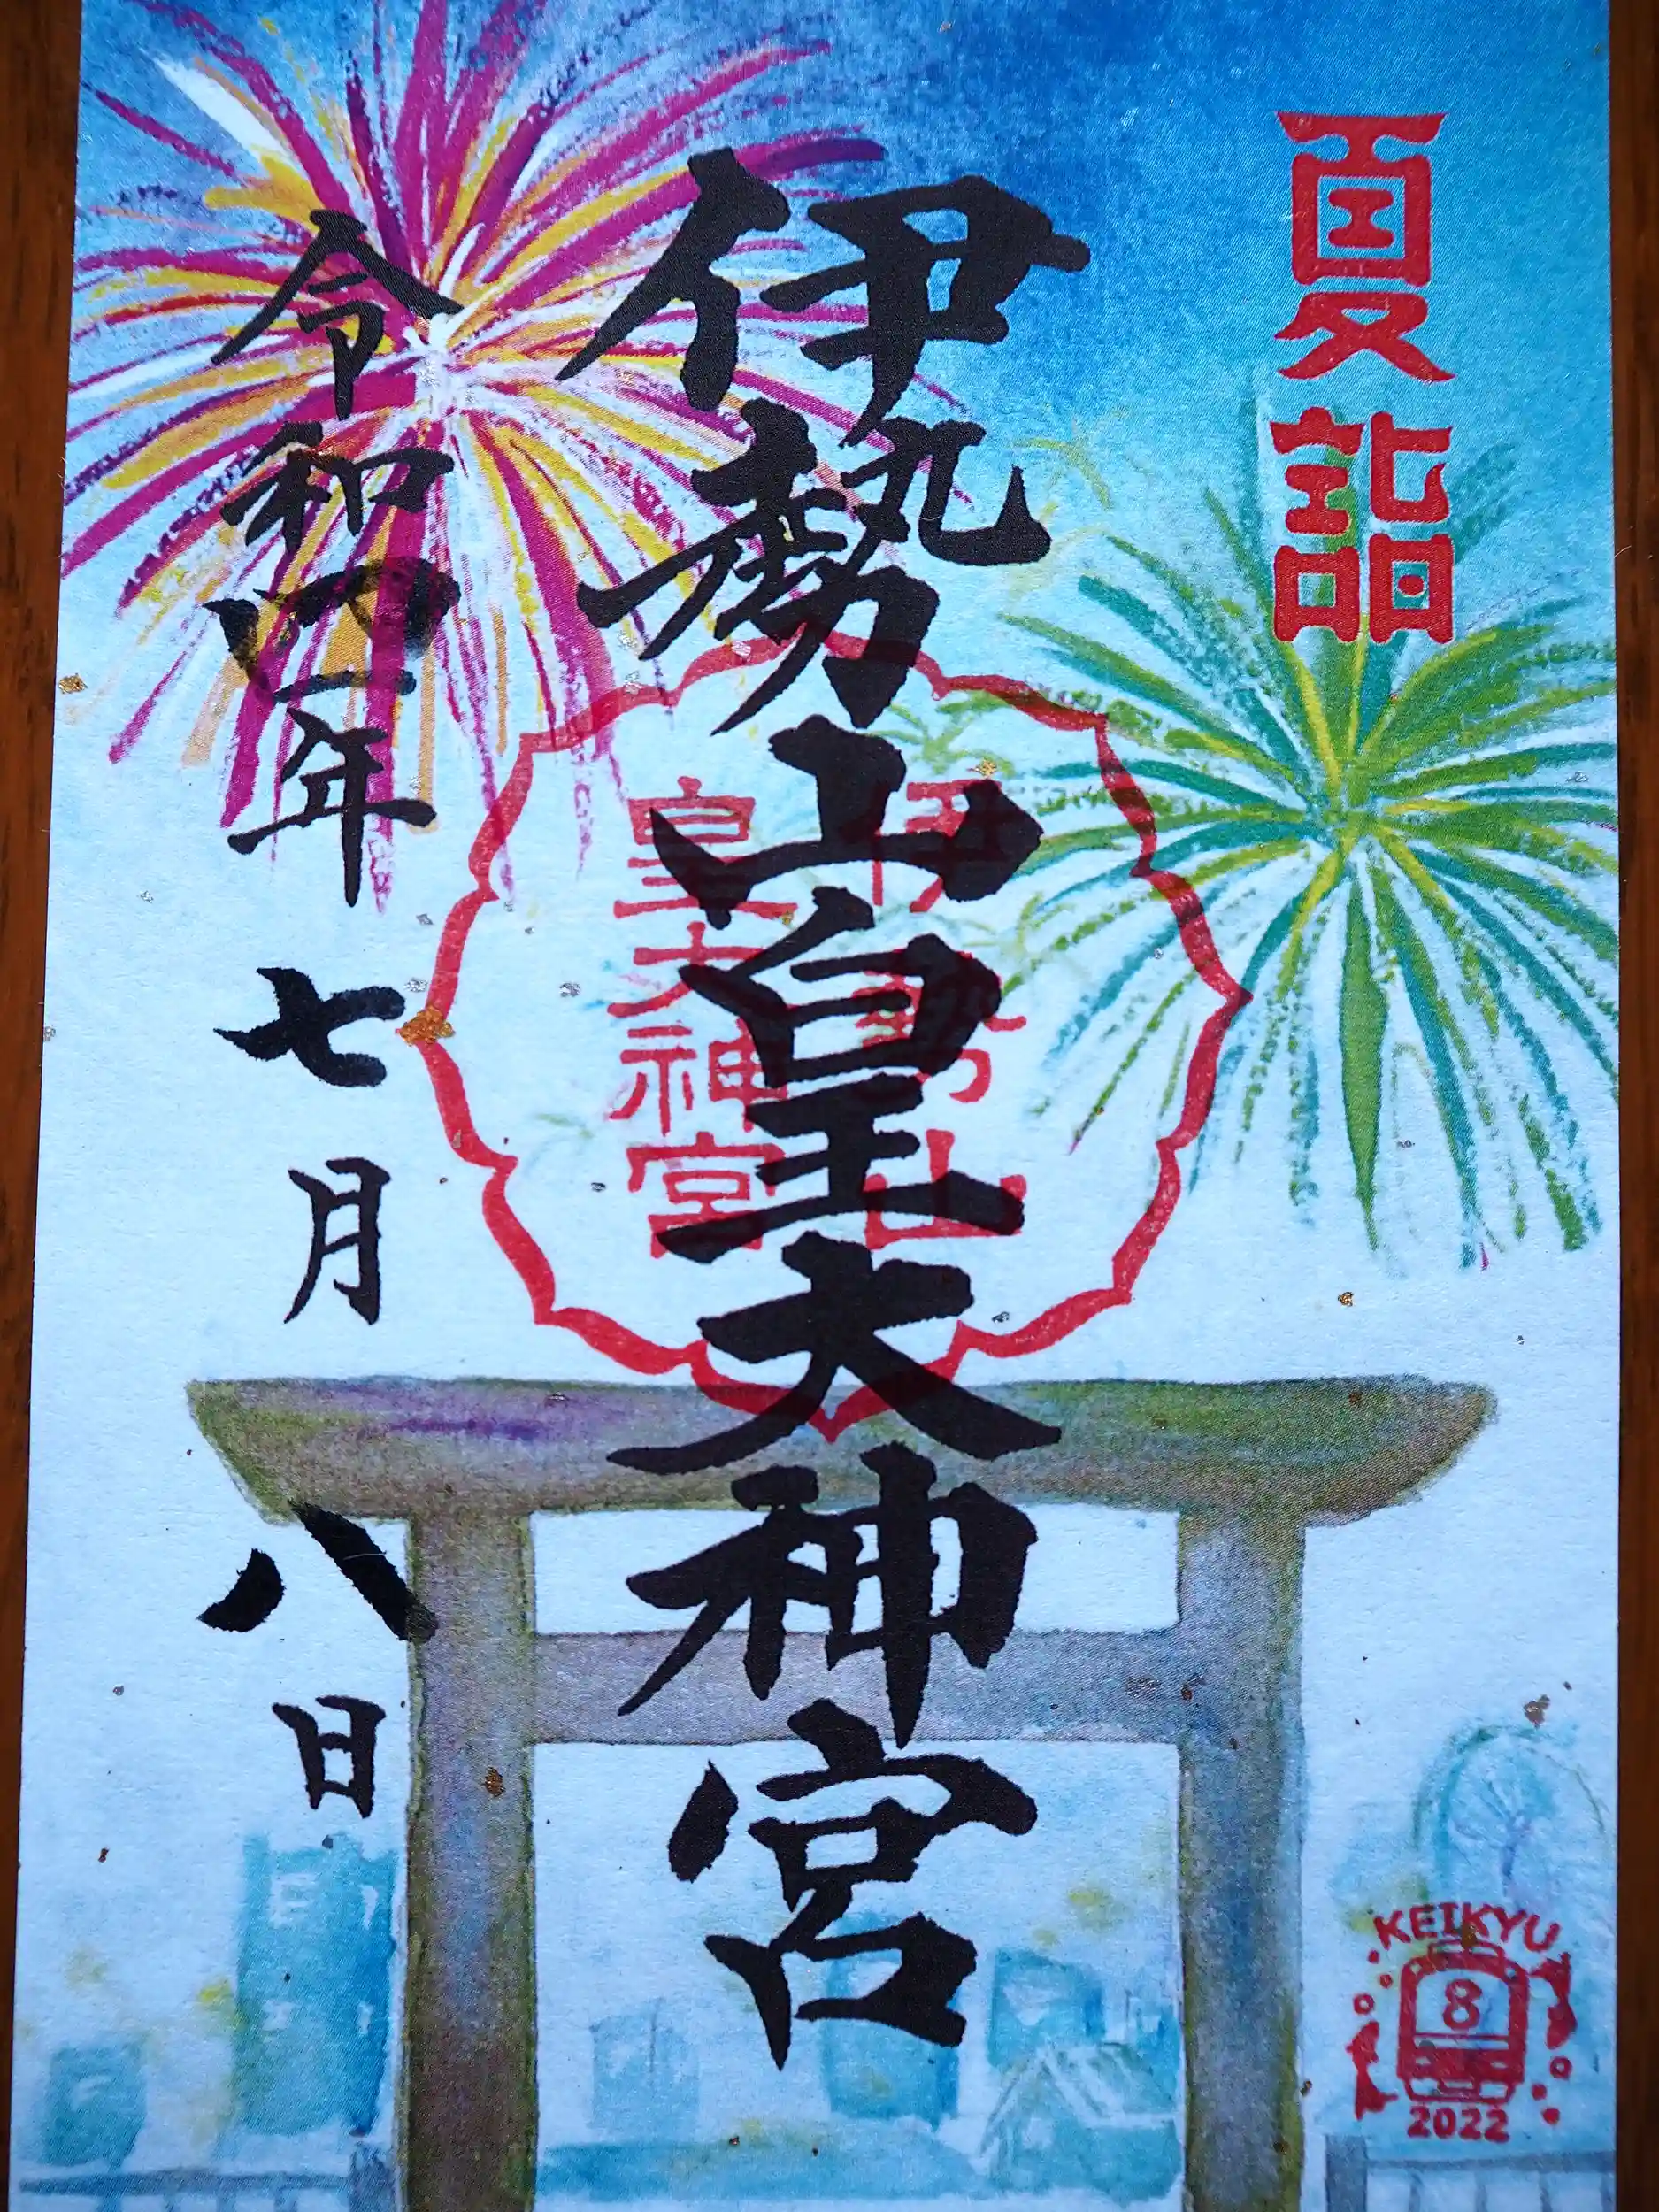 夏詣
伊勢山皇大神宮
伊勢山
皇大神宮
令和四年七月八日
KEIKYU
8
2022